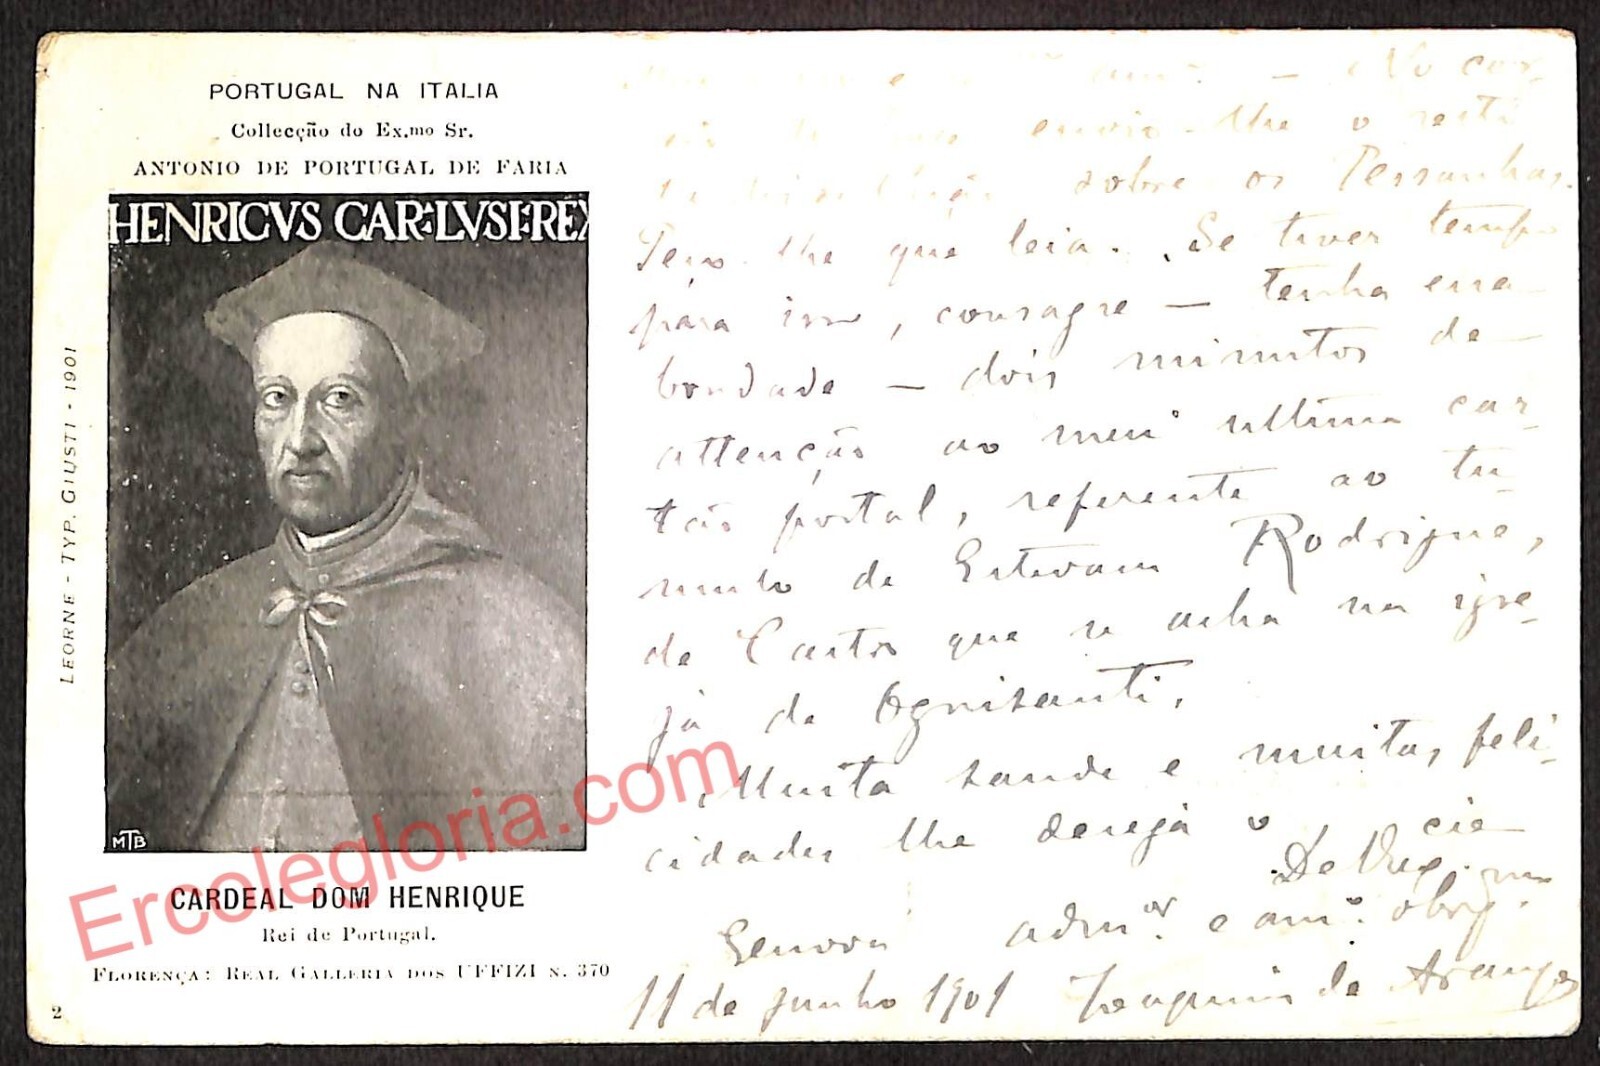 PORTUGAL NA ITALIA
Collecção do Ex.mo Sr.
ANTONIO DE PORTUGAL DE FARIA
HENRICVS CAR:LVSI:REX
MTB
LEORNE - TYP. GIUSTI - 1901
CARDEAL DOM HENRIQUE
Rei de Portugal.
FLORENÇA: REAL GALLERIA DOS UFFIZI N. 370
2
Ercolegloria.com
— No cor-
envio-lhe o
sobre os Pessanhas.
Peço-lhe que leia. Se tiver tempo
para isso, consagre — tenha essa
bondade — dois minutos de
attenção ao meu ultimo car-
tão postal, referente ao tu-
mulo de Estevam Rodrigues
de Castro que se acha na igre-
ja de Ognisanti.
Muita saude e muitas feli-
cidades lhe deseja o
De V. Ex.
Genova adm.or e am.o obrg.
11 de junho 1901 Joaquim de Araujo